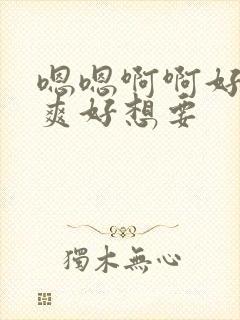 嗯嗯啊啊好
爽好想要
獨木無心